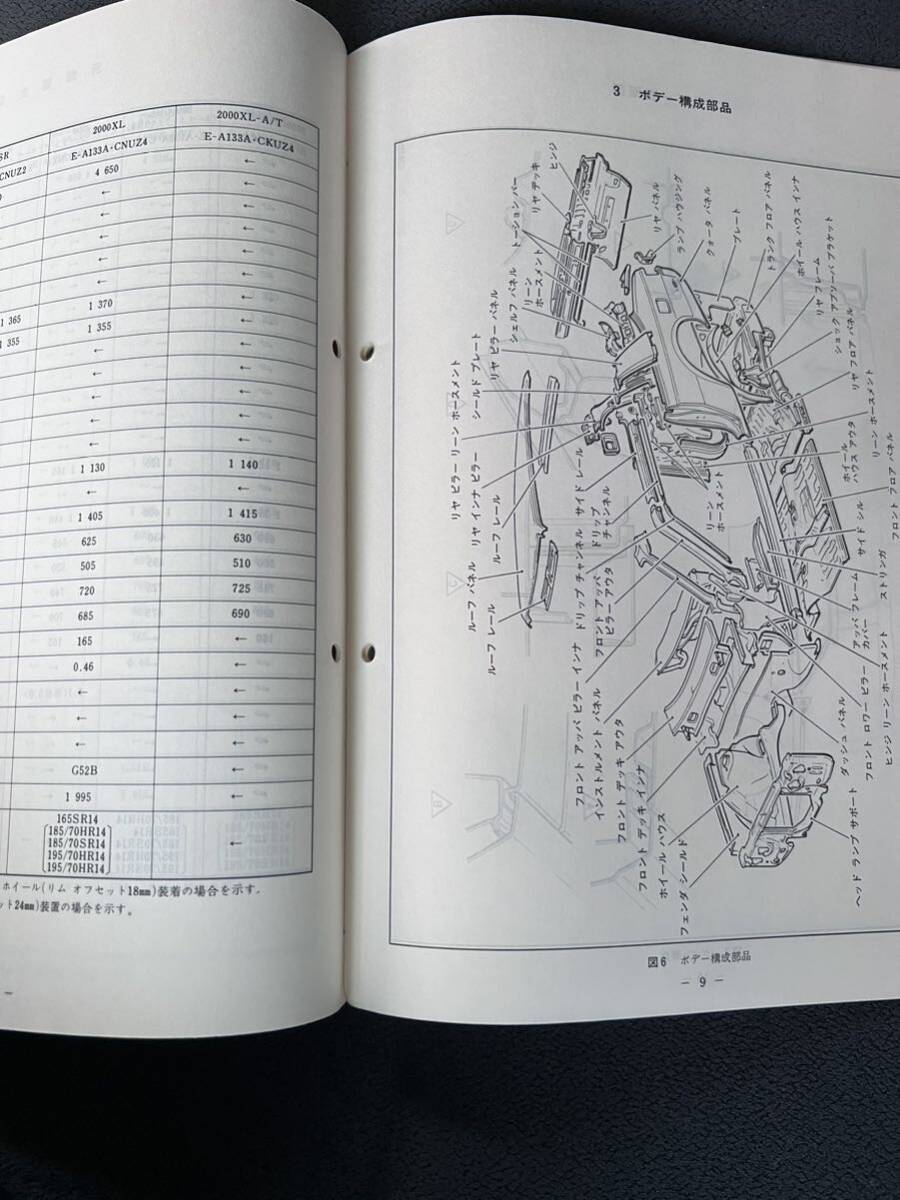 SR 2000XL 2000XL-A/T
CNUZ2 E-A133A・CNUZ4 E-A133A・CKUZ4
4 650 ←
← ←
← ←
← ←
← ←
← ←
1 370 ←
1 365 1 355 ←
1 355 ← ←
← ←
← ←
← ←
← ←
1 130 1 140
← ←
1 405 1 415
625 630
505 510
720 725
685 690
165 ←
0.46 ←
← ←
← ←
← ←
G52B ←
1 995 ←
165SR14
〔185/70HR14〕
〔185/70SR14〕 ←
〔195/70HR14〕
〔195/70HR14〕
ホイール(リム オフセット18mm)装着の場合を示す.
ット24mm)装置の場合を示す。
3 ボデー構成部品
ヒンジ
リヤ デッキ
トーション バー
リヤ パネル
ランプ ハウジング
クォータ パネル
プレート
トランク フロア パネル
ホイール ハウス インナ
ショック アブソーバ ブラケット
リヤ フレーム
リヤ フロア パネル
リーン ホースメント
シェルフ パネル
リヤ ピラー パネル
シールド プレート
リヤ ピラー リーン ホースメント
リヤ インナ ピラー
ルーフ レール
ルーフ パネル
ルーフ レール
サイド レール
ドリップ チャンネル
ドリップ チャンネル
フロント アッパ ピラー アウタ
フロント アッパ ピラー インナ
インストルメント パネル
フロント デッキ アウタ
フロント デッキ インナ
ホイール ハウス
フェンダ シールド
リーン ホースメント
ホイール ハウス アウタ
リーン ホースメント
フロント フロア パネル
サイド シル
ストリンガ
アッパ フレーム
カバー
ヒンジ リーン ホースメント
フロント ロワー ピラー
ダッシュ パネル
ヘッドランプ サポート
図6 ボデー構成部品
— 9 —